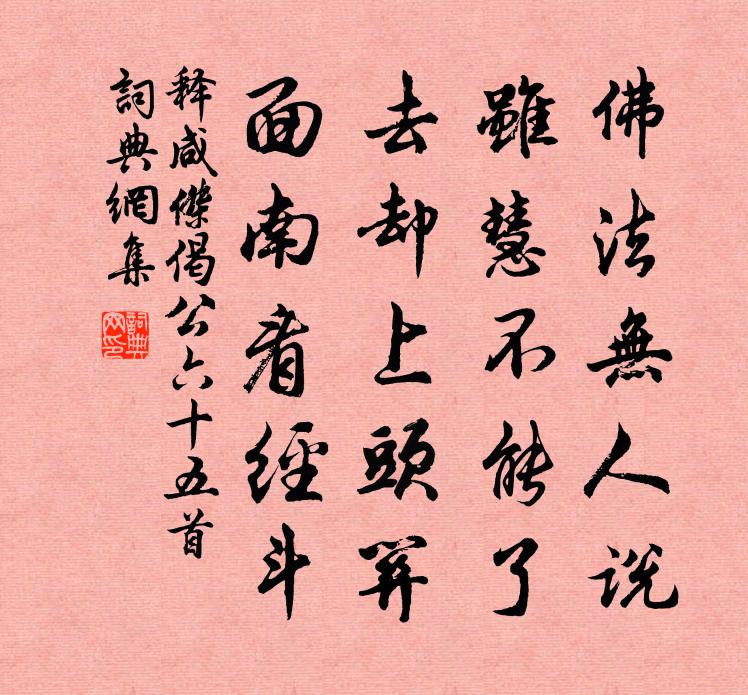 佛法無人說
雖慧不能了
去却上頭
面南看經斗
释咸傑偈公六十五首
詞典網集
詞典网印